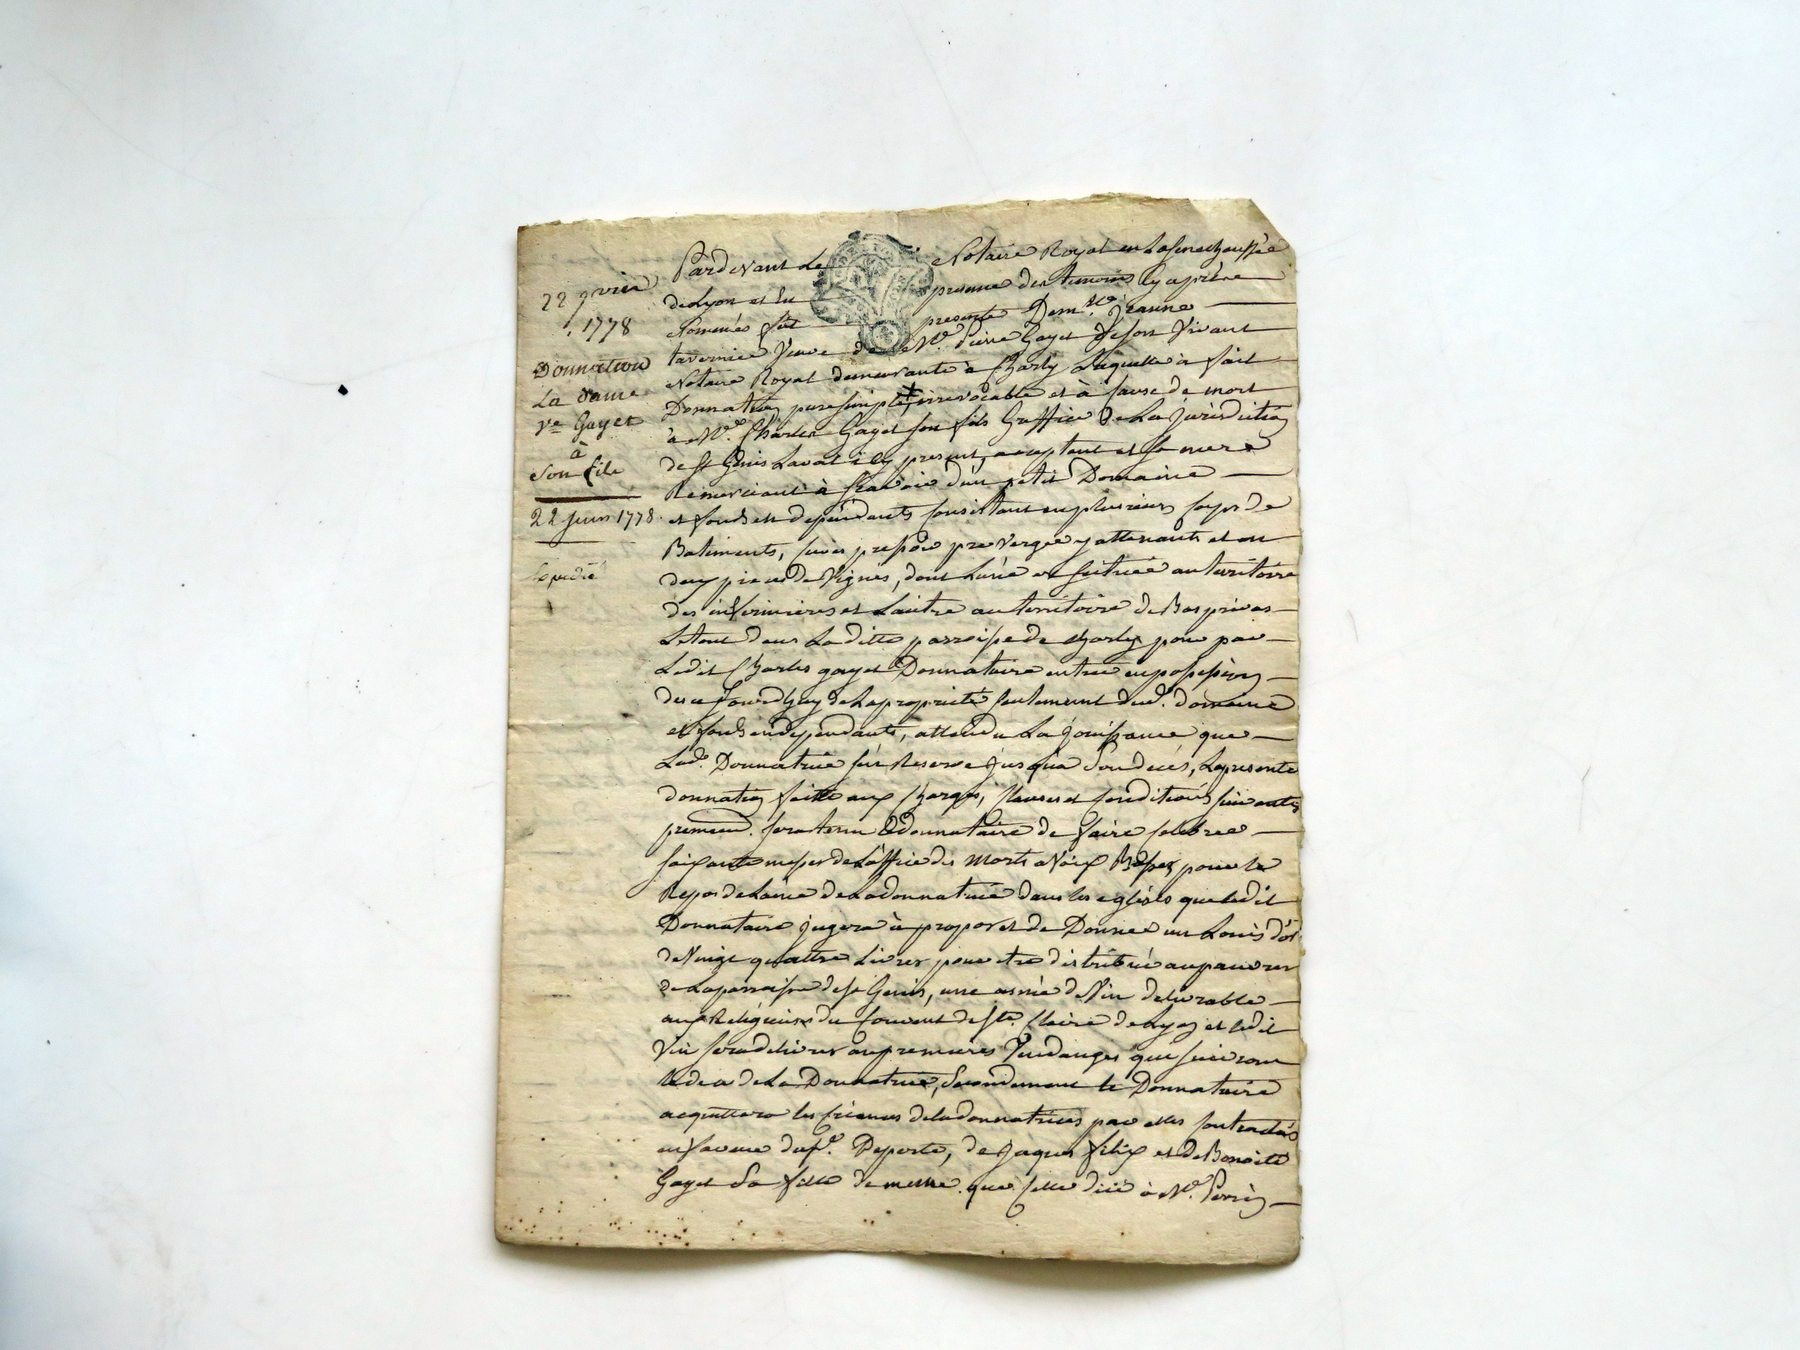 22 juin
1778
Donnation
La Dame
Ve Gayet
à
Son fils
22 juin 1778.
Expedié
Pardevant Le Notaire Royal en La Senechaussée
de Lyon et en presence des temoins cy après
Nommés fut presente Demlle. Jeanne
tavernier Veuve de Me. Pierre Gayet de son Vivant
Notaire Royal demeurante à Charly Laquelle à fait
Donnation pure simple, irrevocable et à Cause de mort
à Me. Charles Gayet son fils Greffier de La jurisdiction
de St Genis Laval icy present, acceptant et sa mere
Remerciant à scavoir d'un petit Domaine
et fonds en dependants Consistant en plusieurs Corps de
Batiments, Cuves pressoir pre Verger y attenants et en
deux pieces de Vignes, dont L'une est scituée au territoire
des infirmieres et L'autre au territoire de Bas privas
Le tout dans La ditte parroisse de Charly pour par
Ledit Charles gayet Donnataire entrer en possession
des ce Jourd'huy de La proprieté seulement dud. domaine
et fonds en dependants, attendu La jouissance que
Lad. Donnatrice se Reserve jusqu'a Son decès, La presente
donnation faitte aux Charges, Clauses et Conditions suivantes
premierem. sera tenu Le donnataire de faire Celebrer
soixante messes de L'office des Morts a Voix Basse pour le
Repos de L'ame de La donnatrice dans les eglises que ledit
Donnataire jugera à propos et de Donner un Louis d'or
de Vingt quattre Livres pour etre distribué aux pauvres
de La parroisse de St Genis, une asnée de Vin delivrable
aux Religieuses du Couvent de Ste. Claire de Lyon et ledit
Vin sera delivré aux premieres Vendanges qui suivront
le deces de La Donnatrice, Secondement le Donnataire
acquittera les Creances de la donnatrice par elles Contractées
en faveur du Sr. Deporte, de Jaques felix et de Benoite
Gayet Sa fille de meme que Celle düe à Mr. Perrin